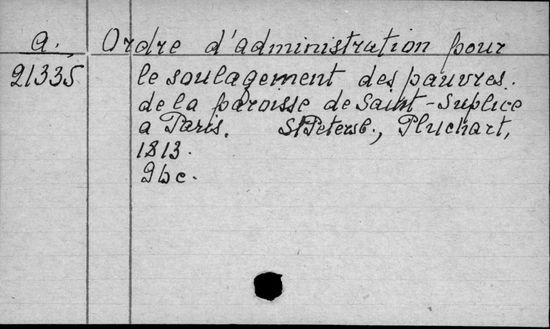 a. Ordre d'administration pour
21335 le soulagement des pauvres.
de la paroisse de Saint-Suplice
a Paris. St Petersb., Pluchart,
1813.
9bc.